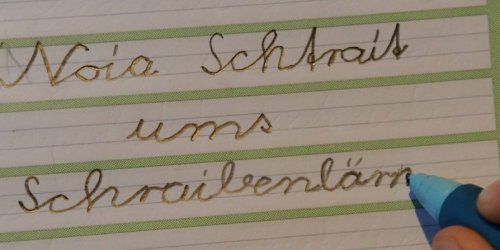 Noia Schtrait
ums
Schraibenlärn